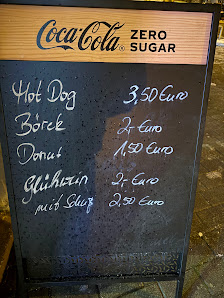 Coca-Cola® ZERO SUGAR
Hot Dog 3,50 Euro
Börek 2,- Euro
Donut 1,50 Euro
Glühwein 2,- Euro
mit Schuß 2,50 Euro